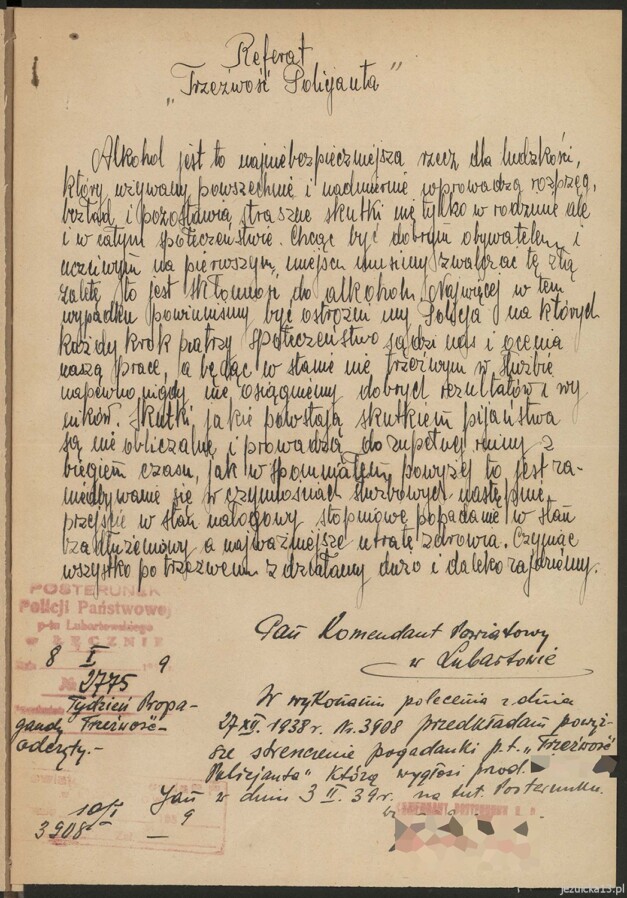 Referat
"Trzeźwość Policjanta"
Alkohol jest to najniebezpieczniejsza rzecz dla ludzkości,
który używany powszechnie i nadmiernie wprowadza rozprzęg,
bezład i pozostawia straszne skutki nie tylko w rodzinie ale
i w całym społeczeństwie. Chcąc być dobrym obywatelem i
uczciwym na pierwszym miejscu musimy zwalczać tę złą
zaletę to jest skłonność do alkoholu. Najwięcej w tem
wypadku powinniśmy być ostrożni my Policja na których
każdy krok patrzy społeczeństwo sądzi nas i ocenia
naszą pracę, a będąc w stanie nie trzeźwym w służbie
napewno nigdy nie osiągniemy dobrych rezultatów i wy
ników. Skutki jakie powstają skutkiem pijaństwa
są nie obliczalne i prowadzą do zupełnej ruiny z
biegiem czasu, jak wspomniałem powyżej to jest za-
niedbywanie się w czynnościach służbowych następnie
przejście w stan nałogowy stopniowe popadanie w stan
zadłużeniowy a najważniejsze utratę zdrowia. Czyniąc
wszystko po trzeźwemu zdziałamy dużo i daleko zajdziemy.
POSTERUNEK
Policji Państwowej
p-tu Lubartowskiego
w ŁĘCZNIE
8 I 9
№ 2775
Tydzień Propa-
gandy Trzeźwość-
odczyty.-
10/I
9
3908
Pan Komendant Powiatowy
w Lubartowie
W wykonaniu polecenia z dnia
27 XII. 1938 r. Nr. 3908 przedkładam powyż-
sze streszczenie pogadanki p.t. „Trzeźwość
Policjanta" którą wygłosi przod.
Jan w dniu 3 II. 39 r. na tut. Posterunku.
KOMENDANT POSTERUNKU P. P.
jezuicka13.pl